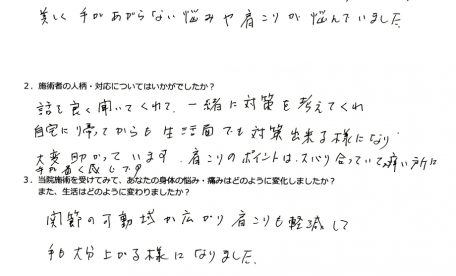 美しく手があがらない悩みや肩こりが悩んでいました
2．施術者の人柄・対応についてはいかがでしたか？
話を良く聞いてくれて、一緒に対策を考えてくれ
自宅に帰ってからも生活面でも対策出来る様になり
大変助かっています．肩こりのポイントは、ズバリ合っていて痛い所に
手が届く感じです
3．当院施術を受けてみて、あなたの身体の悩み・痛みはどのように変化しましたか？
また、生活はどのように変わりましたか？
関節の可動域が広がり肩こりも軽減して
手も大分上がる様になりました．